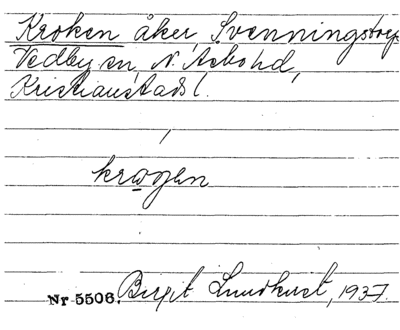 Kroken åker, Svenningstorp
Vedby sn, N. Åsbo hd,
Kristianstads l.
krogen
Nr 5506. Birgit Lundkvist, 1937.